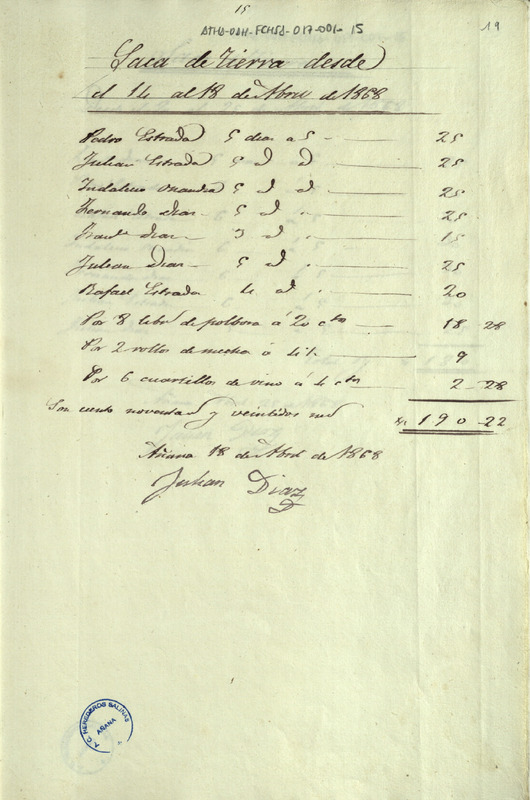 15
ATHA-DAH-FCHSA-017-001-15
19
Saca de tierra desde
el 14 al 18 de Abril de 1868
Pedro Estrada 5 dias a 5 25
Julian Estrada 5 id id 25
Indalecio 5 id id 25
Fernando Diaz 5 id " 25
Diaz 3 id " 15
Julian Diaz 5 id " 25
Rafael Estrada 4 id " 20
Por 8 libs de polbora á 20 ctos 18 28
Por 2 rollos de mecha á 4½ 9
Por 6 cuartillos de vino á 4 ctos 2-28
Son ciento noventa y veintidos mrs Rs 190-22
Añana 18 de Abril de 1868
Julian Diaz
A.C. HEREDEROS SALINAS
AÑANA